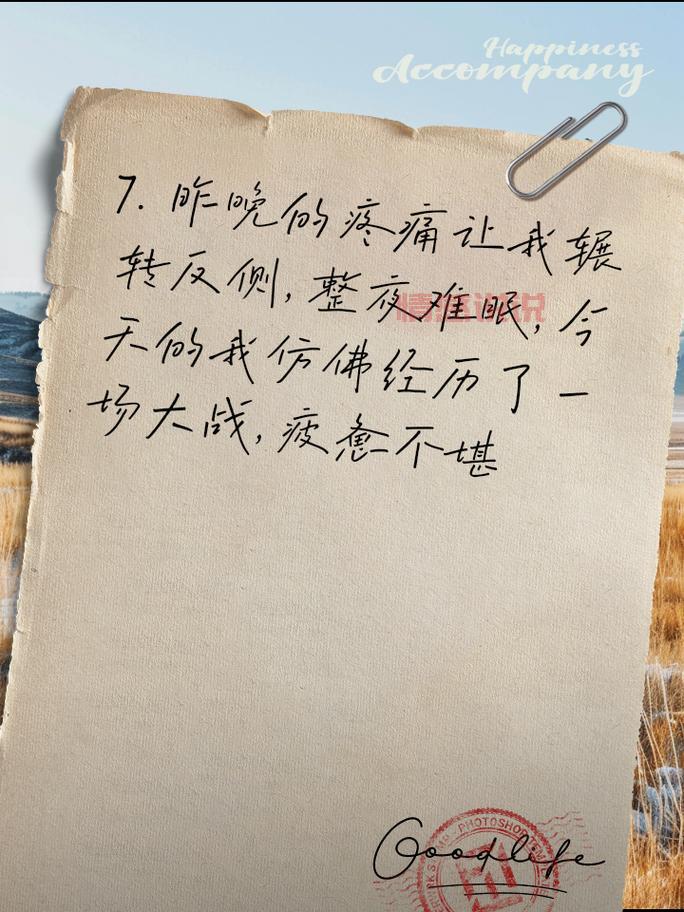 Happiness
Accompany
7. 昨晚的疼痛让我辗
转反侧,整夜难眠,今
天的我仿佛经历了一
场大战,疲惫不堪
Goodlife
PHOTOSHOP